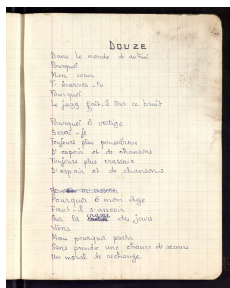 DOUZE
Dans le monde d'autrui
Pourquoi
Mon cœur
T'énerves-tu
Pourquoi
Le jazz fait-il tout ce bruit
Pourquoi ô vertige
Serai-je
Toujours plus poussiéreux
D'espoir et de chansons
Toujours plus crasseux
D'espoir et de chansons
Pourquoi à mon âge
Faut-il s'asseoir
Sur la cruauté des jours
Viens
Mais pourquoi partir
Sans prendre une chance de secours
Un moral de rechange